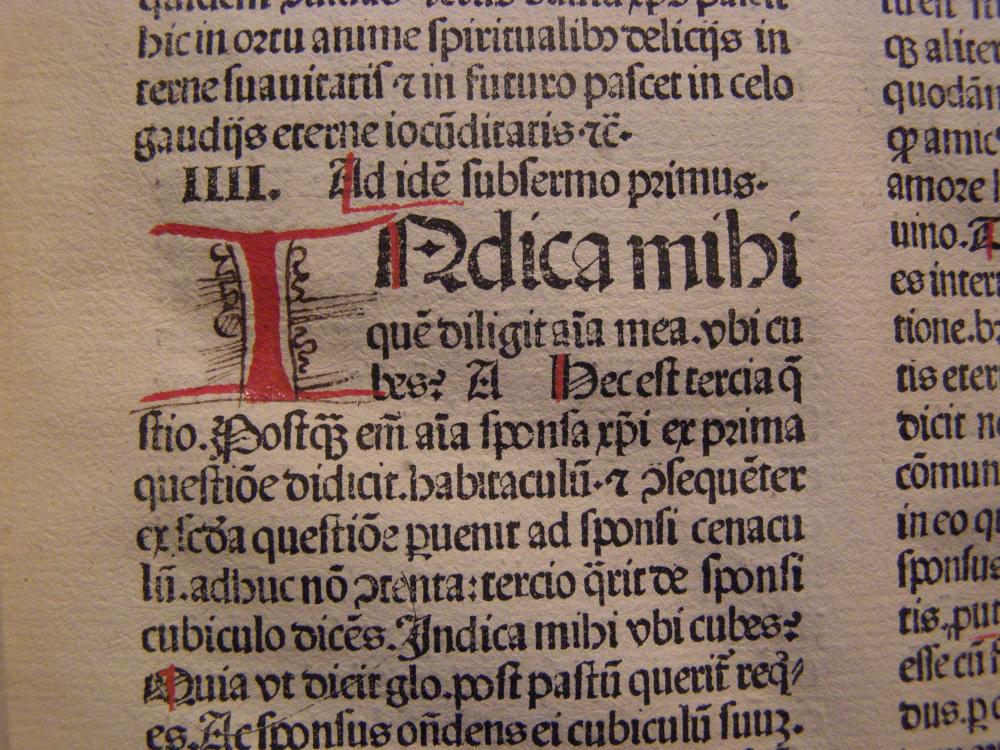 hic in ortu anime spiritualibꝫ delicijs in
terne suauitatis ⁊ in futuro pascet in celo
gaudijs eterne iocūditatis·⁊c̄·
IIII. Ad idē subsermo primus·
INdica mihi
quē diligit aīa mea.vbi cu
bes? A Hec est tercia q̄
stio. Postqꝫ em̄ aīa sponsa xp̄i ex prima
questiōe didicit.habitaculū·⁊ ꝯsequēter
ex scḏa questiōe ꝑuenit ad sponsi cenacu
lū.adhuc nō ꝯtenta:tercio q̄rit de sponsi
cubiculo dicēs.Indica mihi vbi cubes?
Quia vt dicit glo.post pastū querit̄ req̇⸗
es.Ac sponsus oñdens ei cubiculū suuꝫ.
qꝫ aliter
quodām
ꝙ amic
amore
uino.A
es inter
tione.b
tis eter
dicit n
cōmun
in eo q
sponsus
tis.pu
esse cū
dus.p